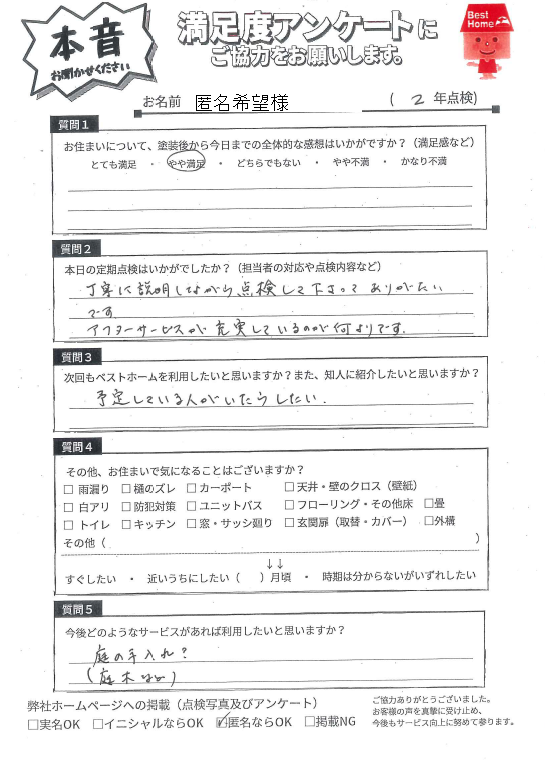 本音
お聞かせください
満足度アンケートに
ご協力をお願いします。
Best Home
お名前 匿名希望様 ( 2 年点検)
質問1
お住まいについて、塗装後から今日までの全体的な感想はいかがですか？（満足感など）
とても満足 ・ やや満足 ・ どちらでもない ・ やや不満 ・ かなり不満
質問2
本日の定期点検はいかがでしたか？（担当者の対応や点検内容など）
丁寧に説明しながら点検して下さって ありがたい
です
アフターサービスが充実しているのが何よりです.
質問3
次回もベストホームを利用したいと思いますか？また、知人に紹介したいと思いますか？
予定している人がいたらしたい.
質問4
その他、お住まいで気になることはございますか？
□ 雨漏り □ 樋のズレ □ カーポート □ 天井・壁のクロス（壁紙）
□ 白アリ □ 防犯対策 □ ユニットバス □ フローリング・その他床 □畳
□ トイレ □ キッチン □ 窓・サッシ廻り □ 玄関扉（取替・カバー） □外構
その他（ ）
↓↓
すぐしたい ・ 近いうちにしたい（ ）月頃 ・ 時期は分からないがいずれしたい
質問5
今後どのようなサービスがあれば利用したいと思いますか？
庭の手入れ？
(庭木など)
弊社ホームページへの掲載（点検写真及びアンケート）
□実名OK □イニシャルならOK ☑匿名ならOK □掲載NG
ご協力ありがとうございました。
お客様の声を真摯に受け止め、
今後もサービス向上に努めて参ります。